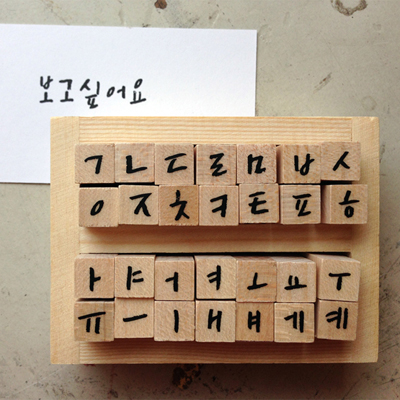 보고싶어요
ㄱㄴㄷㄹㅁㅂㅅ
ㅇㅈㅊㅋㅌㅍㅎ
ㅏㅑㅓㅕㅗㅛㅜ
ㅠㅡㅣㅐㅒㅔㅖ